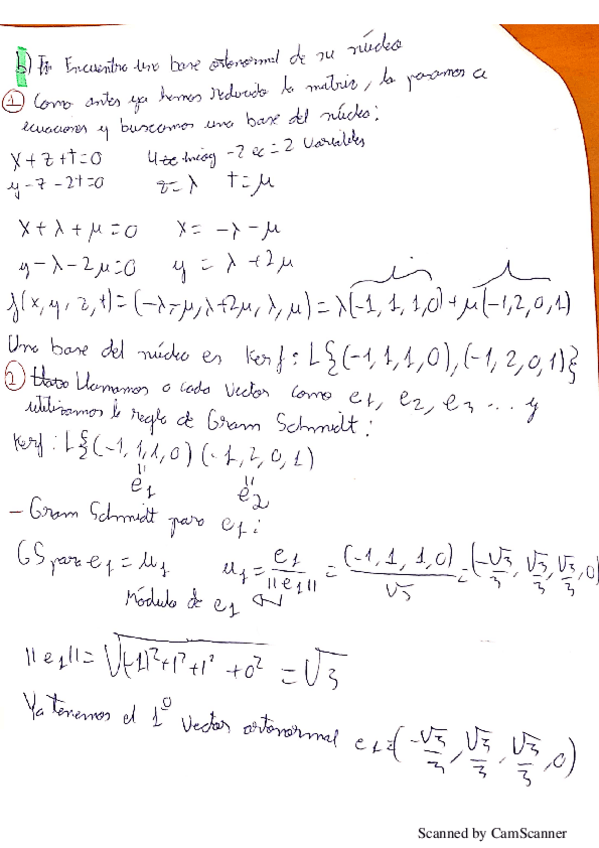 b) Encuentra una base ortonormal de su núcleo
1 Como antes ya hemos reducido la matriz, la pasamos a
ecuaciones y buscamos una base del núcleo:
x+z+t=0 -2 ec = 2 variables
y-z-2t=0 z=λ t=μ
x+λ+μ=0 x= -λ-μ
y-λ-2μ=0 y = λ+2μ
f(x,y,z,t)=(-λ-μ,λ+2μ,λ,μ)=λ(-1,1,1,0)+μ(-1,2,0,1)
Una base del núcleo es Kerf: L{(-1,1,1,0),(-1,2,0,1)}
Llamamos a cada vector como e1, e2, e3 ... y
utilizamos la regla de Gram Schmidt:
Kerf: L{(-1,1,1,0)(-1,2,0,1)
e1 e2
- Gram Schmidt para e1:
GS para e1=μ1 μ1= e1/||e1|| = (-1,1,1,0)/√3 = (-√3/3, √3/3, √3/3, 0)
Módulo de e1
||e1||=√((-1)²+1²+1²+0²) = √3
Ya tenemos el 1º vector ortonormal e1=(-√3/3, √3/3, √3/3, 0)
Scanned by CamScanner